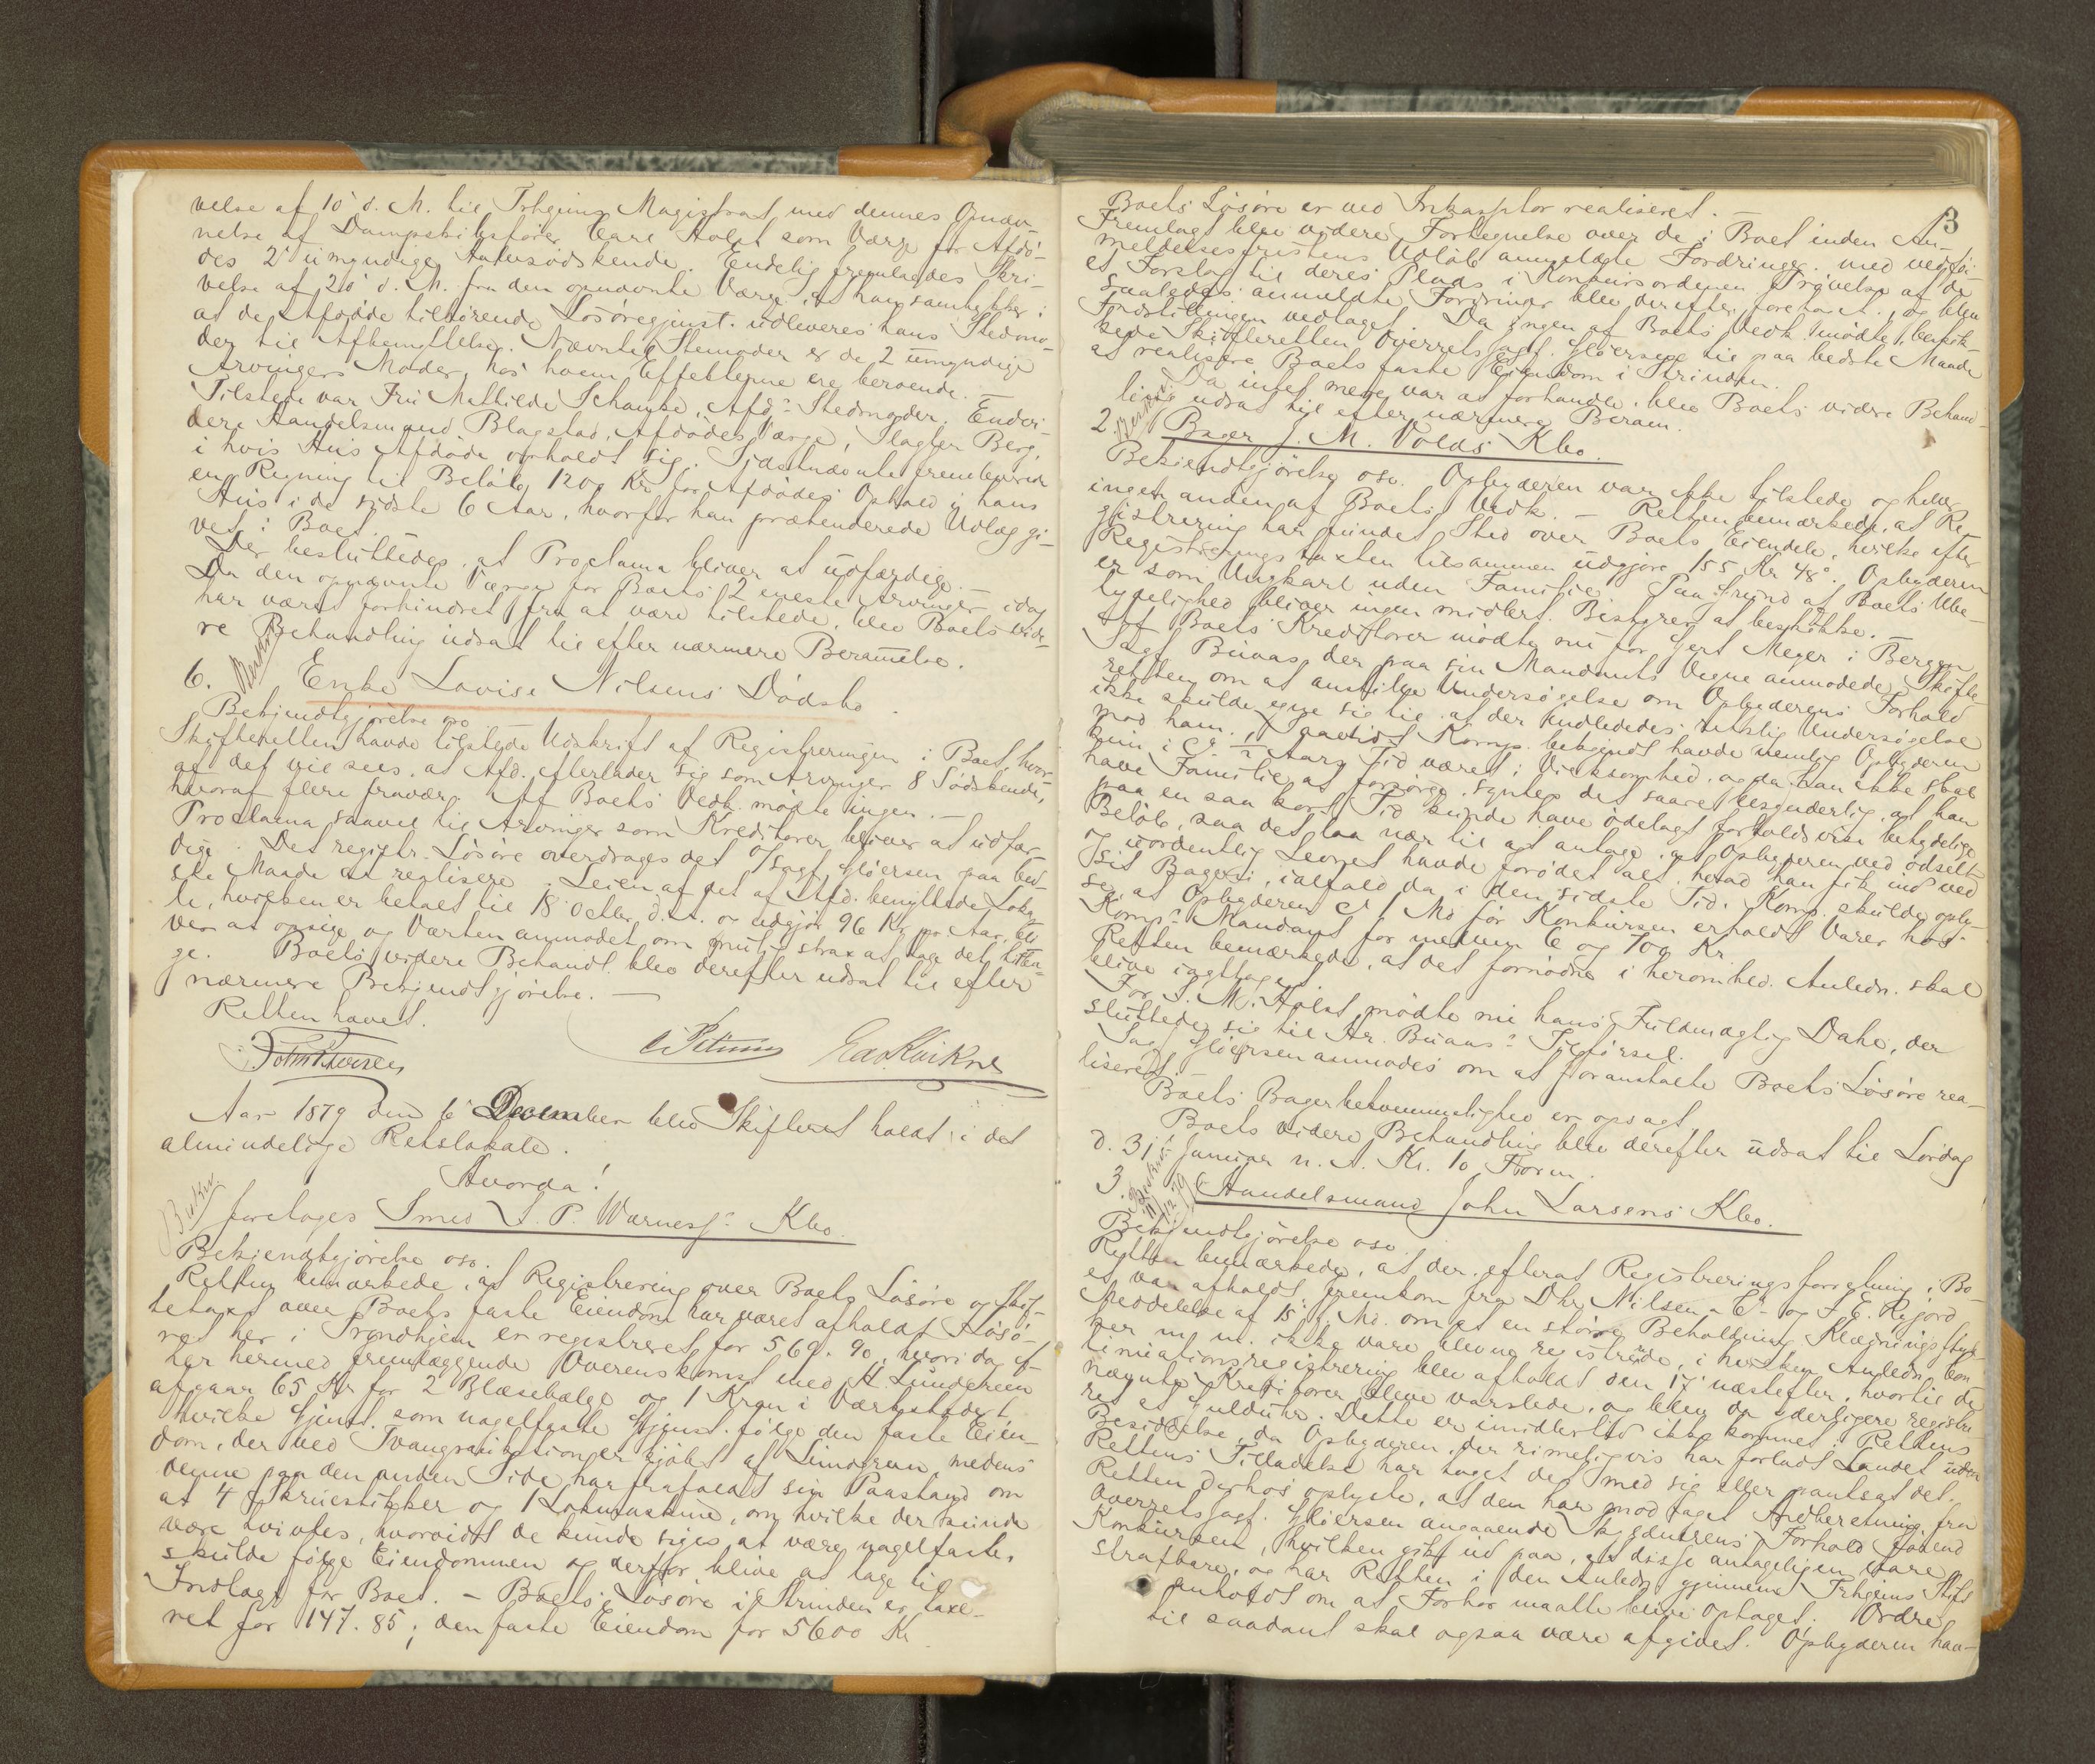 velse af 10' d. M. til Trhjems Magistrat med dennes Opnæv-
nelse af Dampskibsfører Carl Holst som Værge for Afdö-
des 2 umyndige Halvsödskende. Endelig fremlagdes Skri-
velse af 20' d. M. fra den opnævnte Værge, at han samtykker i
at de Afdöde tilhörende Lösöregjenst. udleveres hans Stedmo-
der til Afbenyttelse. Nævnte Stemoder er de 2 umyndige
Arvingers Moder, hos hvem Effekterne ere beroende. —
Tilstede var Fru Mathilde Schanke, Afdº Stedmoder. Endvi-
dere Handelsmand Blagstad, Afdödes Værge, Slagter Berg,
i hvis Hus Afdöde opholdt sig. Sidstnævnte fremleverede
en Regning til Beløb 1200 Kr for Afdödes Ophold i hans
Hus i de sidste 6 Aar, hvorfor han prætenderede Udlæg gi-
vet i Boet.
Der besluttedes, at Proclama bliver at udfærdige. —
Da den opnævnte Værge for Boets 2 eneste Arvinger idag
har været forhindret fra at være tilstede, blev Boets vide-
re Behandling udsat til efter nærmere Berammelse.
6. Enke Lovise Nilsens Dödsbo.
Bekjendtgjörelse osv.
Skifteretten havde tilstede Udskrift af Registreringen i Boet, hvor-
af det vil sees, at Afd. efterlader sig som Arvinger 8 Södskende,
hvoraf flere fravær. Af Boets Vedk. mödte ingen. —
Proclama saavel til Arvinger som Kreditorer bliver at udfær-
dige. Det registr. Lösöre overdrages det O/sagf. Glöersen paa bed-
ste Maade at realisere. Leien af det af Afd. benyttede Loka-
le, hvilken er betalt til 18' Octbr. d. A. og udgjör 96 Kr pr Aar, bli-
ver at opsige og Værten anmodet om mulig strax at tage det tilba-
ge. Boets videre Behandl. blev derefter udsat til efter
nærmere Bekjendtgjörelse. —
Retten hævet.
Edv. Kvikne
Aar 1879 den 6' December blev Skifteret holdt i det
almindelige Retslokale.
Hvorda!
foretoges Smed S. P. Warnessº Kbo.
Bekjendtgjörelse osv.
Retten bemærkede, at Registrering over Boets Lösöre og Skif-
tetaxt over Boets faste Eiendom har været afholdt. Lösö-
ret her i Trondhjem er registreret for 569. 90, hvori dog ef-
ter hermed fremlæggende Overenskomst med H. Lundgreen
afgaar 65 Kr for 2 Blæsebælge og 1 Kran i Værkstedet,
hvilke Gjenst. som nagelfaste Gjenst. fölge den faste Eien-
dom, der ved Tvangsauktion er kjöbt af Lundgreen, medens
denne paa den anden Side har frafaldt sin Paastand om
at 4 Skruestikker og 1 Lokmaskine, om hvilke der kunde
være tvivles, hvorvidt de kunde siges at være nagelfaste,
skulde fölge Eiendommen og derfor blive at tage til
Indtægt for Boet. — Boets Lösöre i Strinden er taxe-
ret for 147. 85; den faste Eiendom for 5600 Kr
3
Boets Lösöre er ved Inkassator realiseret. —
Fremlagt blev videre Fortegnelse over de i Boet inden An-
meldelsesfristens Udlöb anmeldte Fordringer med vedföi-
et Forslag til deres Plads i Konkursordenen. Prövelse af de
saaledes anmeldte Fordringer blev derefter foretaget, og blev
Indstillingen vedtaget. Da ingen af Boets Vedk. mödte, beskik-
kede Skifteretten Overretssagf. Glöersen til paa bedste Maade
at realisere Boets faste Eiendom i Strinden.
Da intet mere var at forhandle, blev Boets videre Behand-
ling udsat til efter nærmere Beram.
2. Bager J. M. Volds Kbo.
Bekjendtgjörelse osv. Opbyderen var ikke tilstede og heller
ingen anden af Boets Vedk. — Retten bemærkede, at Re-
gistrering har fundet Sted over Boets Eiendele, hvilke efter
Registreringstaxten tilsammen udgjöre 155 Kr 48º. Opbyderen
er som Ungkarl uden Familie. Paa Grund af Boets Ube-
tydelighed bliver ingen midlert. Bestyrer at beskikke. —
Af Boets Kreditorer mödte nu for Gert Meyer i Bergen
Sagf. Buaas, der paa sin Mandants Vegne anmodede Skifte-
retten om at anstille Undersögelse om Opbyderens Forhold
ikke skulde egne sig til, at der indlededes retslig Undersögelse
mod ham. Saavidt Komp. bekjendt havde nemlig Opbyderen
kun i cª ½ Aars Tid været i Virksomhed, og da han ikke skal
have Familie at forsörge, syntes det saare besynderlig, at han
paa en saa kort Tid kunde have ödelagt forholdsvis betydelige
Belöb, saa det laa nær til at antage, at Opbyderen ved ödselt
og uordentlig Levnet havde forödet alt, hvad han fik ind ved
sit Bageri, ialfald da, i den sidste Tid. Komp. skulde oply-
se, at Opbyderen cª 1 Md för Konkursen erholdt Varer hos
Kompº Mandant for mellem 6 og 700 Kr
Retten bemærkede, at det fornödne i heromhdl. Anledn. skal
blive iagttaget.
For P. M. Holst mödte nu hans Fuldmægtig Dahl, der
sluttede sig til Hr. Buaasº Tilförsel.
Sagf. Glöersen anmodes om at foranstalte Boets Lösöre rea-
liseret.
Boets Bagerbekvemmelighed er opsagt.
Boets videre Behandling blev derefter udsat til Lördag
d. 31' Januar n. A. Kl. 10 Form.
3. Handelsmand John Larsens Kbo.
Bekjendtgjörelse osv.
Retten bemærkede, at der efterat Registreringsforretning i Bo-
et var afholdt fremkom fra Dhr. Nilsen & Cº og J. E. Rygord
Meddelelse af 15' f. Md. om at en större Beholdning Klædningsstyk-
ker m. m. ikke vare blevne registrerede, i hvilken Anledn. kon-
tinuationsregistrering blev afholdt den 17' næstefter, hvortil de
nævnte Kreditorer bleve varslede, og blev da yderligere registre-
ret et Gulduhr. Dette er imidlertid ikke kommet i Rettens
Besiddelse, da Opbyderen, der rimeligvis har forladt Landet uden
Rettens Tilladelse har taget det med sig eller pantsat det.
Retten derhos oplyste, at den har modtaget Indberetning fra
Overretssagf. Glöersen angaaende Skyldnerens Forhold forend
Konkursen, hvilken gik ud paa, at disse antageligen vare
strafbare, og har Retten i den Anledn. gjennem Trhjems Stift
anholdt om at Forhör maatte blive optaget; Ordre
til saadant skal ogsaa være afgivet. Opbyderen hav-